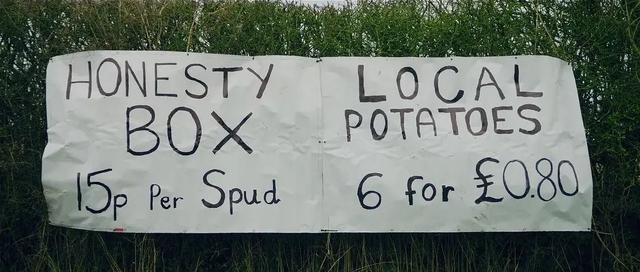 HONESTY
BOX
15p Per Spud
LOCAL
POTATOES
6 for £0.80